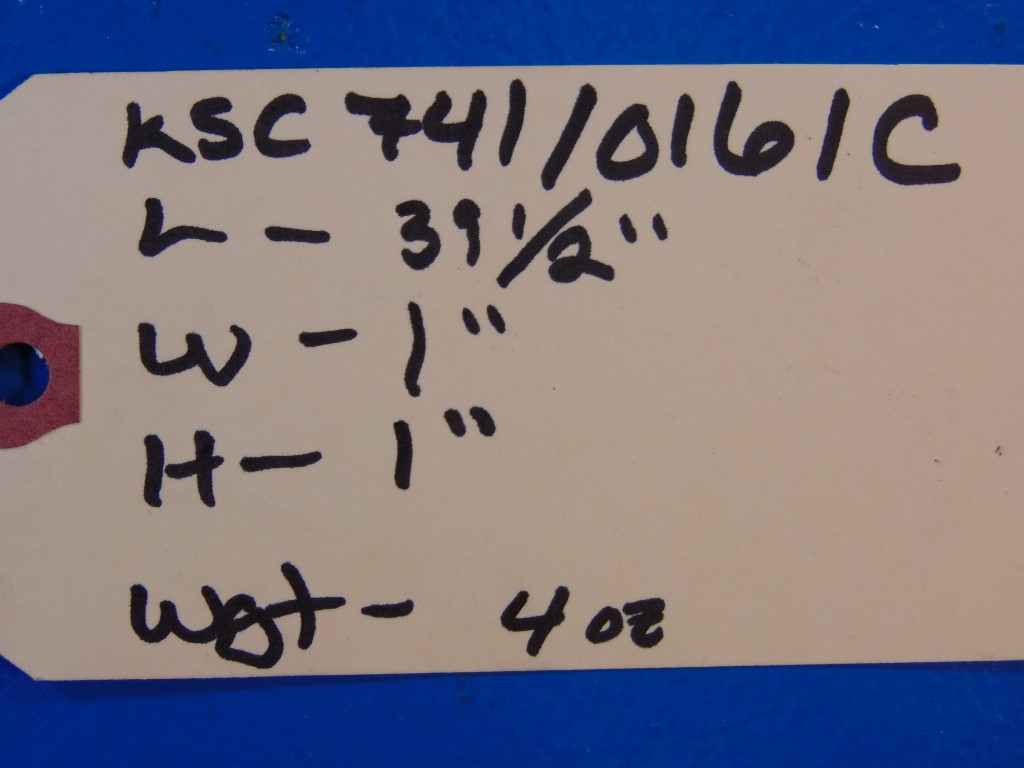 KSC 741/0161C
L - 39 1/2"
W - 1"
H - 1"
Wgt - 4 oz